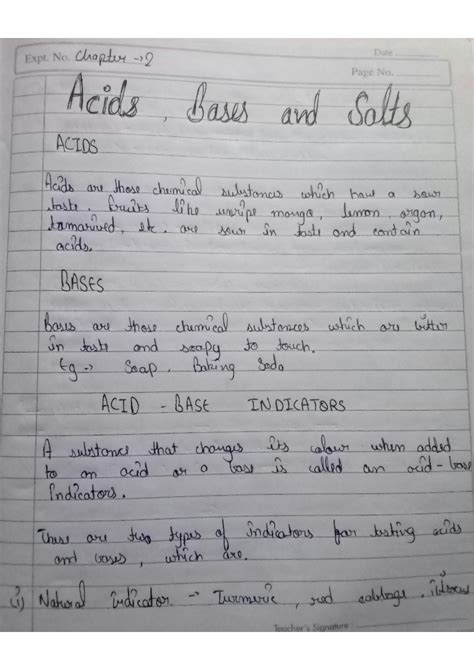 Date
Expt. No. Chapter → 2
Page No.
Acids, Bases and Salts
ACIDS
Acids are those chemical substances which have a sour
taste. fruits like unripe mango, lemon, organ,
tamarived, etc. are sour in taste and contain
acids.
BASES
Bases are those chemical substances which are bitter
in taste and soapy to touch.
Eg → Soap, Baking Soda
ACID - BASE INDICATORS
A substance that changes its colour when added
to an acid or a base is called an acid-base
Indicators.
There are two types of indicators for testing acids
and bases, which are.
(i) Natural indicator. → Turmeric, red cabbage,
Teacher's Signature :